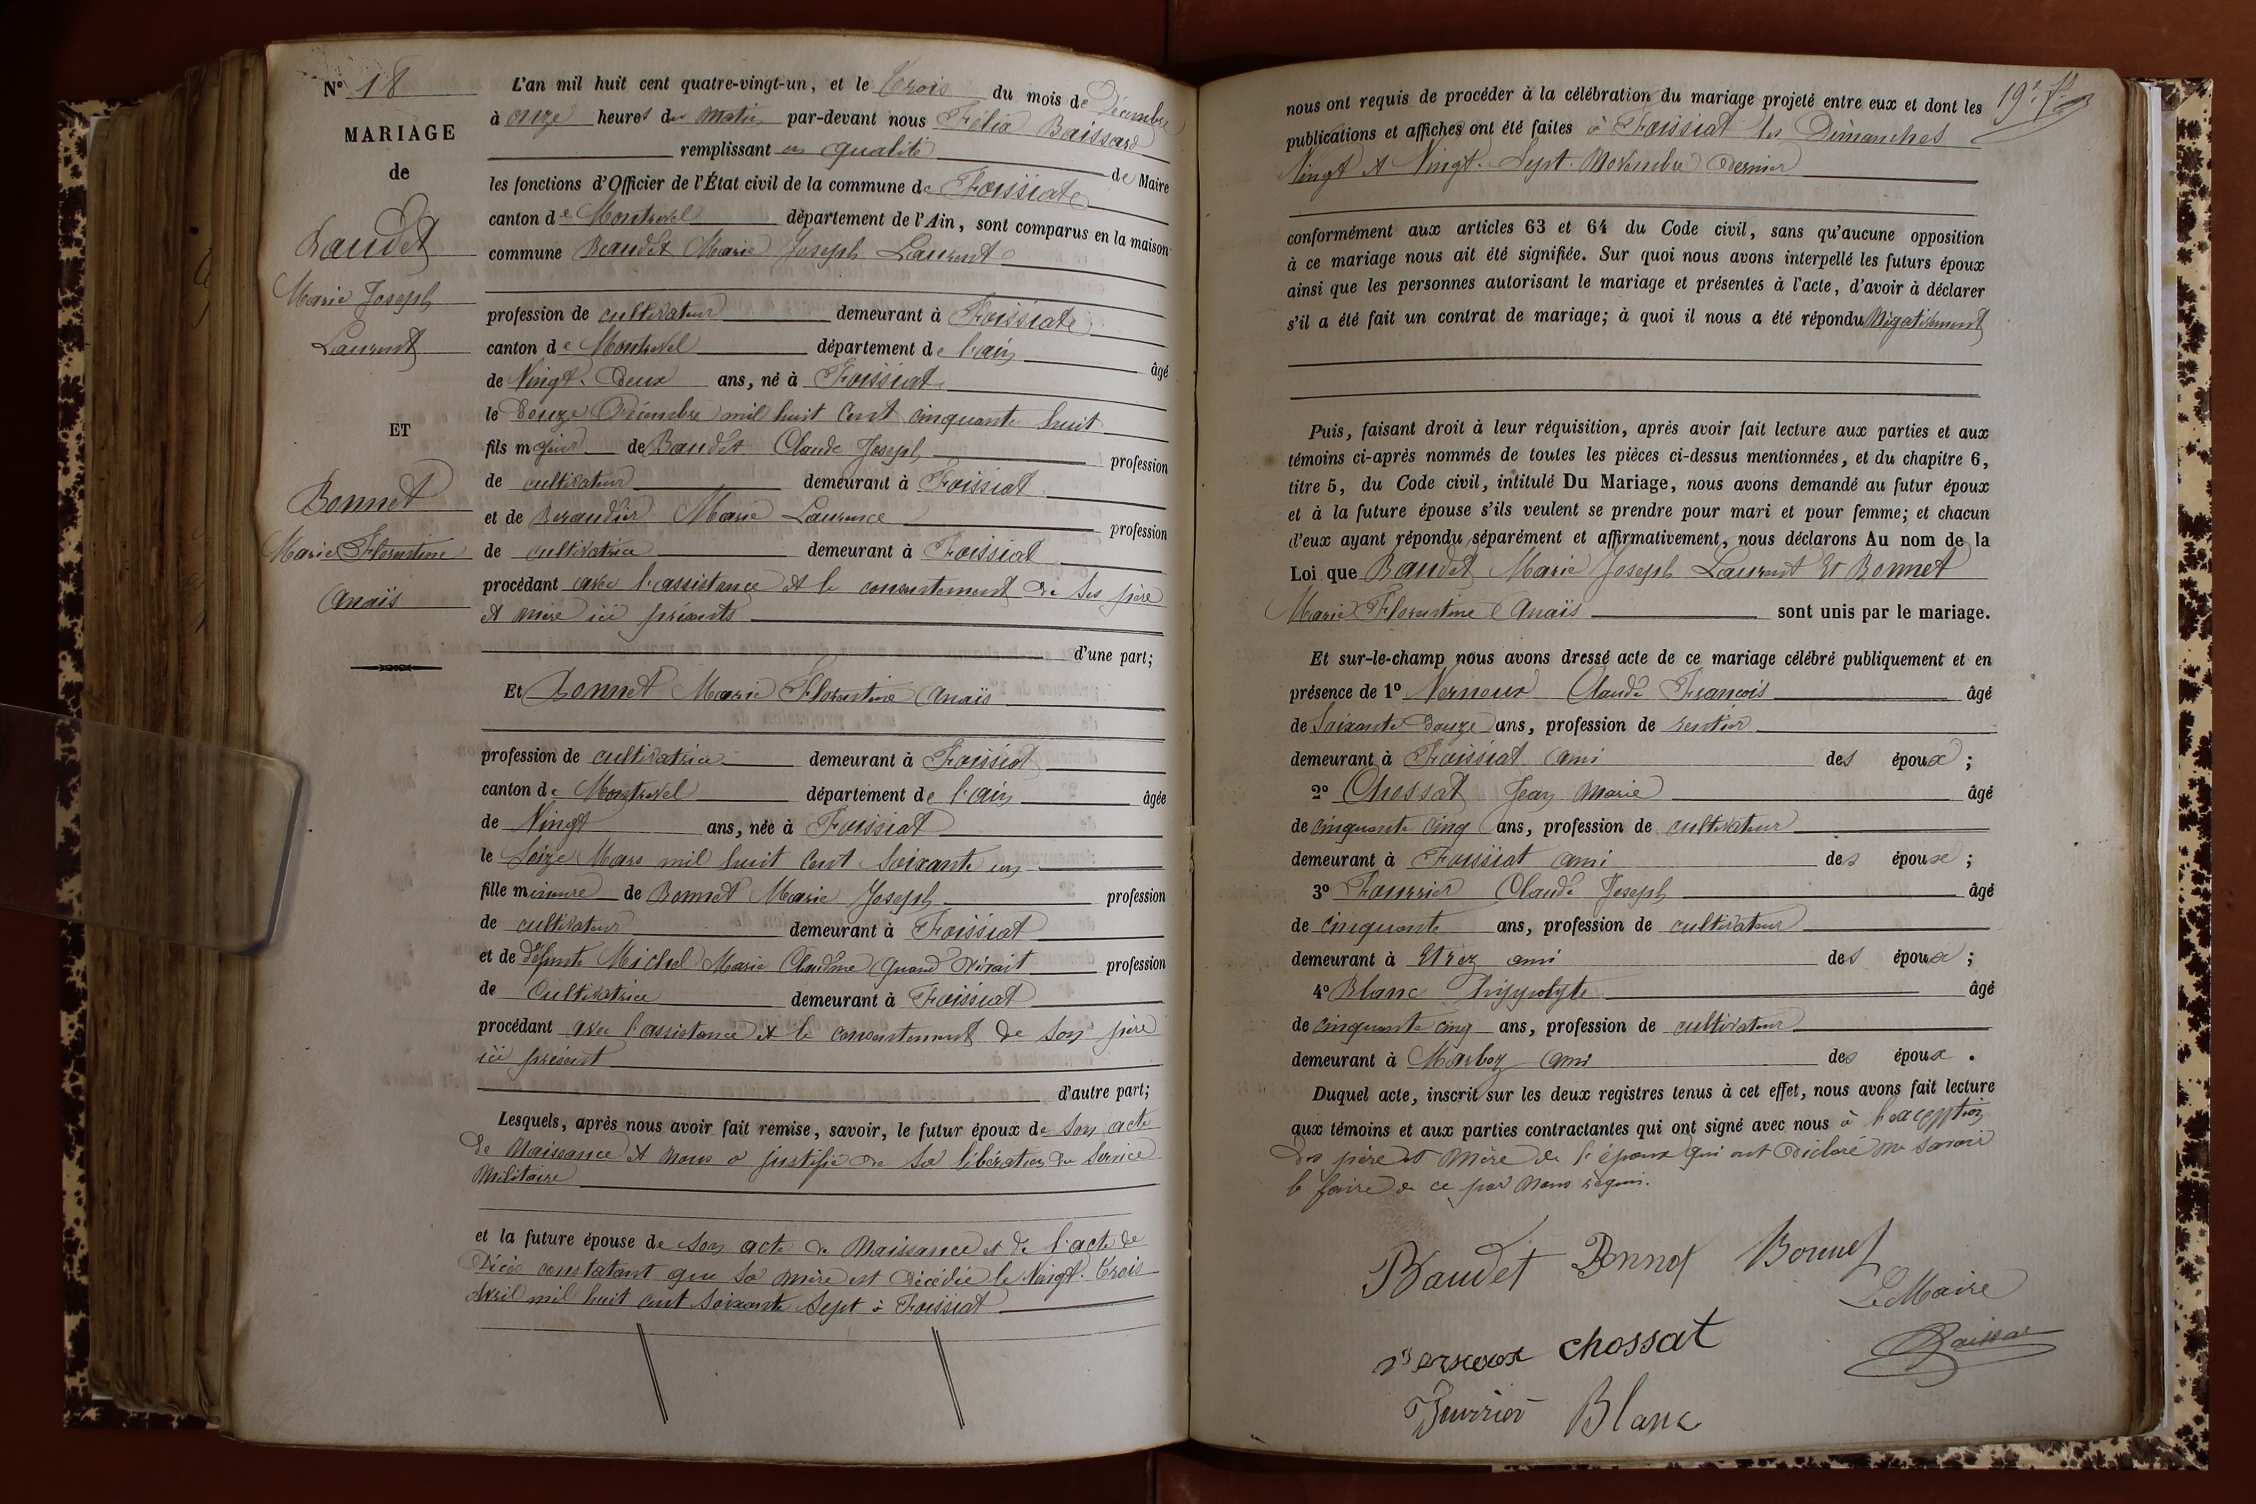 N° 18
MARIAGE
de
Baudet
Marie Joseph
Laurent
ET
Bonnet
Marie Florentine
Anaïs
L'an mil huit cent quatre-vingt-un, et le Trois du mois de Décembre
à onze heures du matin par-devant nous Félix Baissard
remplissant en qualité de Maire
les fonctions d'Officier de l'État civil de la commune de Foissiat
canton de Montrevel département de l'Ain, sont comparus en la maison
commune Baudet Marie Joseph Laurent
profession de cultivateur demeurant à Foissiat
canton de Montrevel département de l'ain âgé
de Vingt-Deux ans, né à Foissiat
le Douze Décembre mil huit cent cinquante huit
fils majeur de Baudet Claude Joseph profession
de cultivateur demeurant à Foissiat
et de Beraudier Marie Laurence profession
de cultivatrice demeurant à Foissiat
procédant avec l'assistance et le consentement de ses père
et mère ici présents
d'une part;
Et Bonnet Marie Florentine Anaïs
profession de cultivatrice demeurant à Foissiat
canton de Montrevel département de l'ain âgée
de Vingt ans, née à Foissiat
le Seize Mars mil huit cent soixante un
fille mineure de Bonnet Marie Joseph profession
de cultivateur demeurant à Foissiat
et de défunte Michel Marie Claudine quand vivait profession
de Cultivatrice demeurant à Foissiat
procédant avec l'assistance et le consentement de son père
ici présent
d'autre part;
Lesquels, après nous avoir fait remise, savoir, le futur époux de son acte
de Naissance et nous a justifié de sa libération du service
militaire
et la future épouse de son acte de Naissance et de l'acte de
Décès constatant que sa mère est décédée le Vingt-Trois
avril mil huit cent soixante sept à Foissiat
19e
nous ont requis de procéder à la célébration du mariage projeté entre eux et dont les
publications et affiches ont été faites à Foissiat les Dimanches
Vingt et Vingt-Sept Novembre dernier
conformément aux articles 63 et 64 du Code civil, sans qu'aucune opposition
à ce mariage nous ait été signifiée. Sur quoi nous avons interpellé les futurs époux
ainsi que les personnes autorisant le mariage et présentes à l'acte, d'avoir à déclarer
s'il a été fait un contrat de mariage; à quoi il nous a été répondu Négativement
Puis, faisant droit à leur réquisition, après avoir fait lecture aux parties et aux
témoins ci-après nommés de toutes les pièces ci-dessus mentionnées, et du chapitre 6,
titre 5, du Code civil, intitulé Du Mariage, nous avons demandé au futur époux
et à la future épouse s'ils veulent se prendre pour mari et pour femme; et chacun
d'eux ayant répondu séparément et affirmativement, nous déclarons Au nom de la
Loi que Baudet Marie Joseph Laurent Et Bonnet
Marie Florentine Anaïs sont unis par le mariage.
Et sur-le-champ nous avons dressé acte de ce mariage célébré publiquement et en
présence de 1° Verneux Claude François âgé
de Soixante-Douze ans, profession de rentier
demeurant à Foissiat ami des époux ;
2° Chossat Jean Marie âgé
de cinquante cinq ans, profession de cultivateur
demeurant à Foissiat ami des époux ;
3° Fourrier Claude Joseph âgé
de cinquante ans, profession de cultivateur
demeurant à Etrez ami des époux ;
4° Blanc Hippolyte âgé
de cinquante cinq ans, profession de cultivateur
demeurant à Marboz ami des époux .
Duquel acte, inscrit sur les deux registres tenus à cet effet, nous avons fait lecture
aux témoins et aux parties contractantes qui ont signé avec nous à l'exception
des père et mère de l'époux qui ont déclaré ne savoir
le faire de ce par nous requis.
Baudet Bonnet Bonnet
Le Maire
Verneux Chossat Baissard
Fourrier Blanc